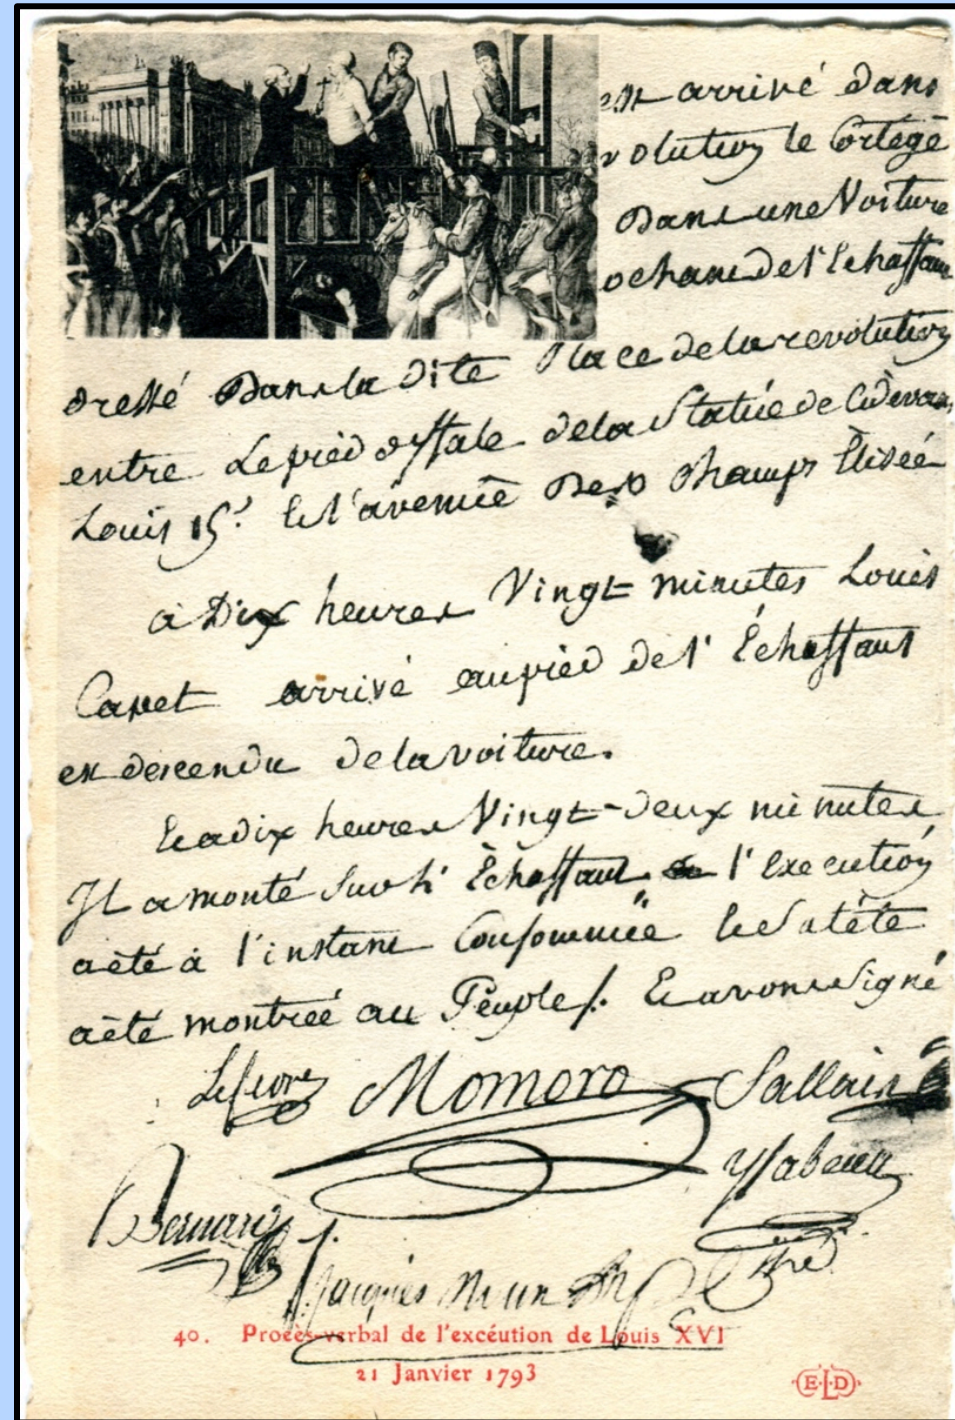 est arrivé dans
volution le Cortège
Dans une Voiture
ochant de l'Echaffaut
dressé Dans la dite Place de la revolution
entre Le pied d'estale de la Statüe de Cidevant
Louis 15. et l'avenüe Des Champs Elisée
à Dix heures Vingt minutes Louis
Capet arrivé au pied de l'Échaffaut
est descendu de la voiture.
Et a dix heures Vingt-deux minutes
Il a monté sur l'Échaffaut l'execution
a été à l'instant Consommée et sa tête
a été montreé au Peuple/. Et avons signé
Lefevre Momoro Sallais
Ysabeau
Bernard
Jacques
40. Procès-verbal de l'excéution de Louis XVI
21 Janvier 1793
E.L.D